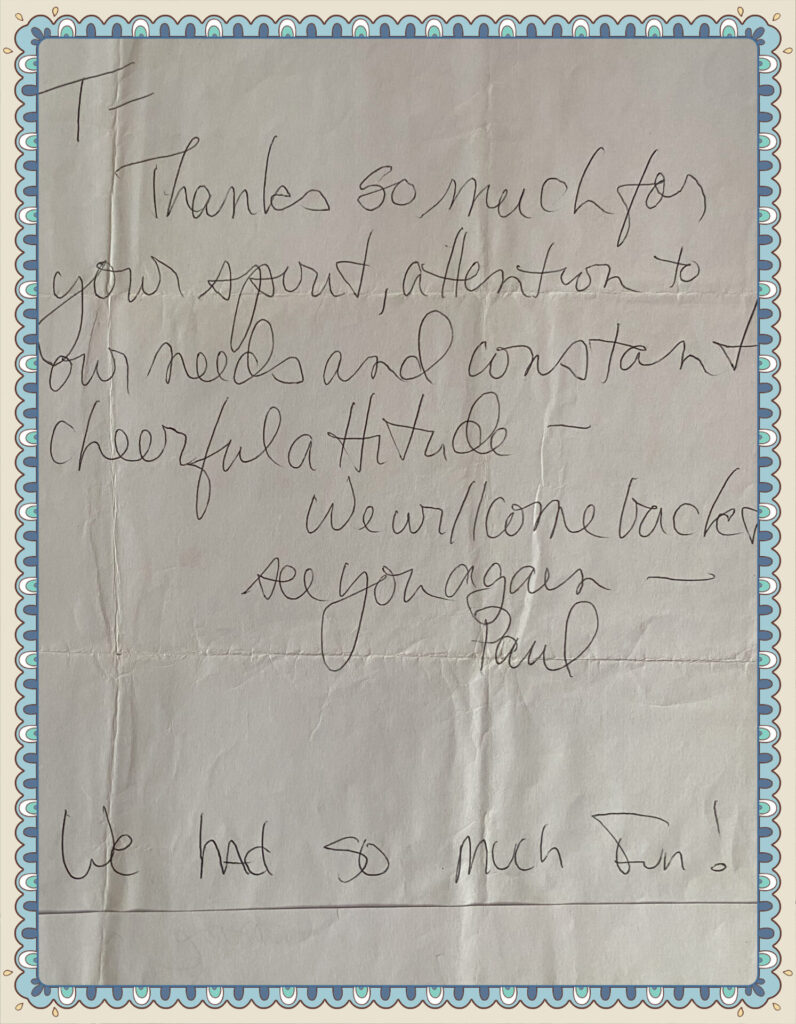 T-
Thanks so much for
your spirit, attention to
our needs and constant
cheerful attitude -
We will come back &
see you again -
Paul
We had so much Fun!